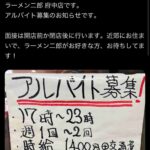 ラーメン二郎 府中店です。
アルバイト募集のお知らせです。
面接は開店前か閉店後に行います。近郊にお住ま
いで、ラーメン二郎がお好きな方、お待ちしてま
す！
アルバイト募集!
17時~23時
週1回~2回
時給 1400円